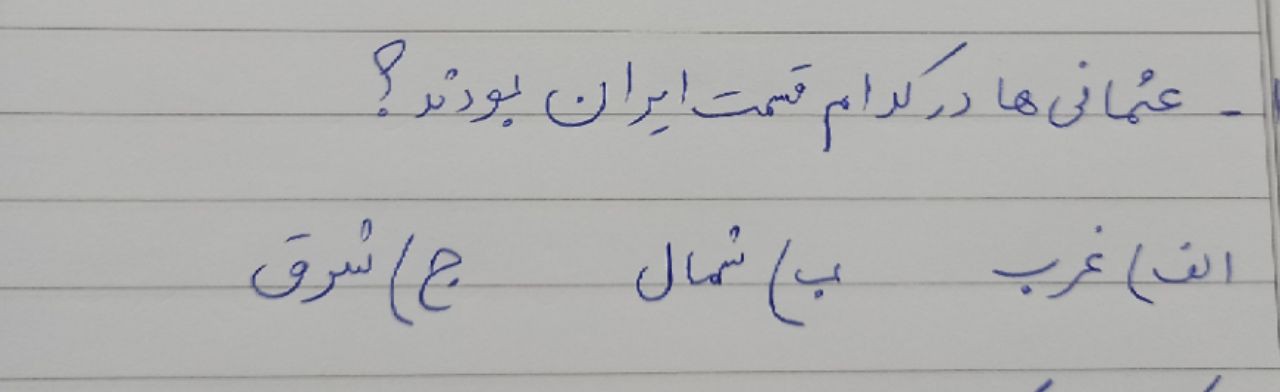 - عثمانی ها در کدام قسمت ایران بودند؟
الف) غرب ب) شمال ج) شرق